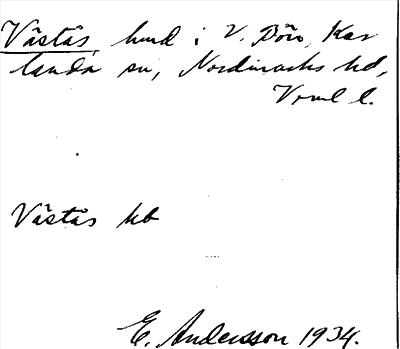 Västås, hmd i V. Bön, Kar
landa sn, Nordmarks hd,
Vrml l.
Västås hb
E. Andersson 1934.